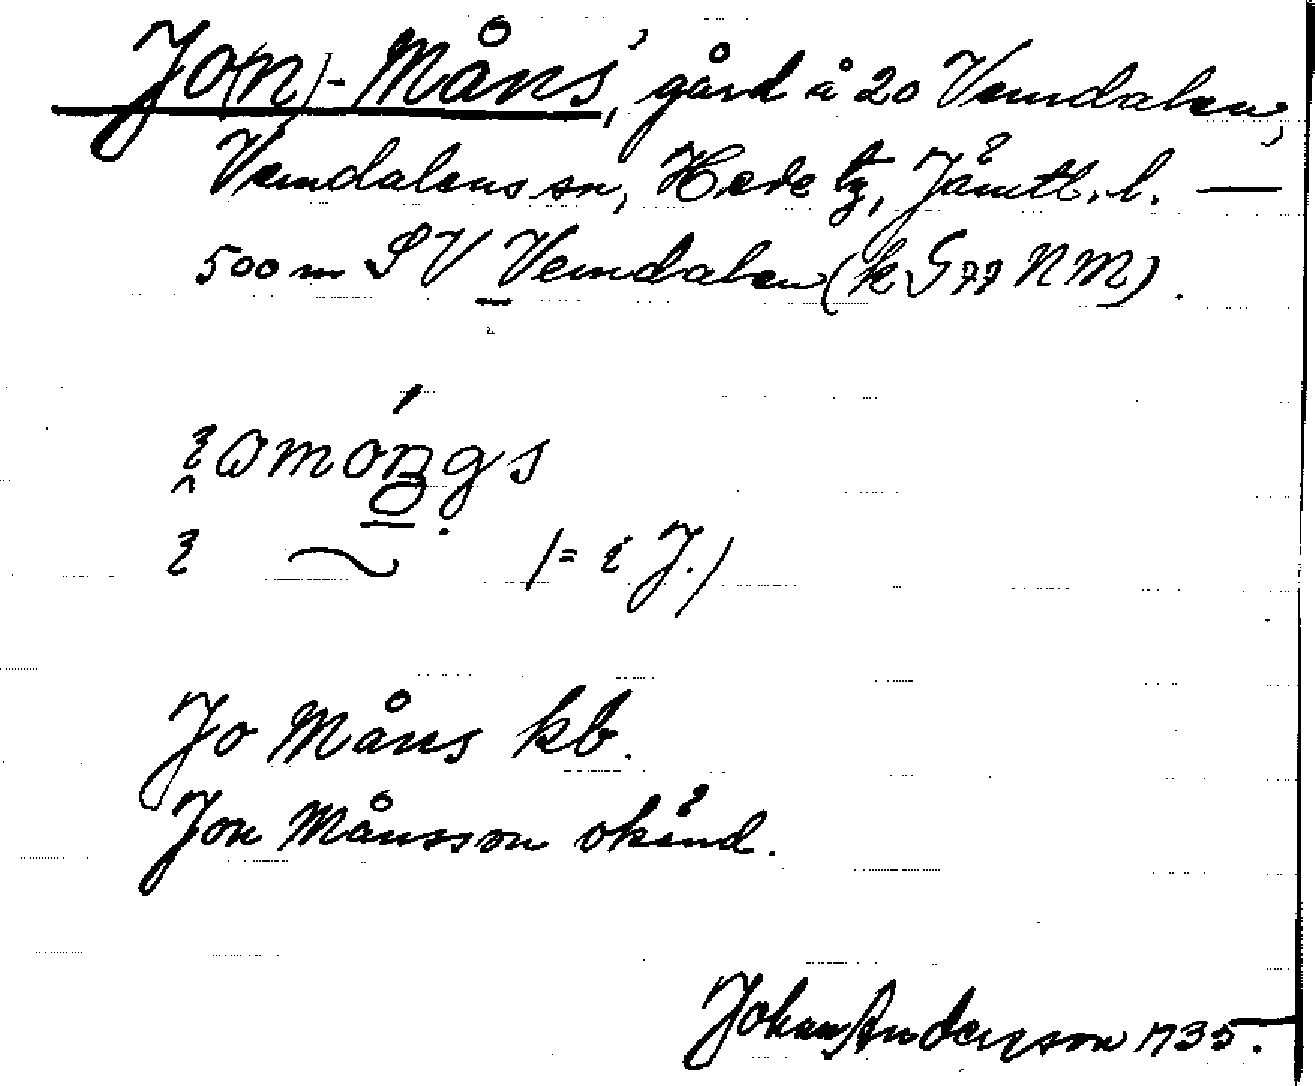 Jo(n)-Måns', gård å 20 Vemdalen,
Vemdalens sn, Hede tg, Jämtl. l. —
500 m SV Vemdalen (k G77 NM).
(= i J.)
Jo Måns kb.
Jon Månsson okänd.
Johan Anderson 1735.